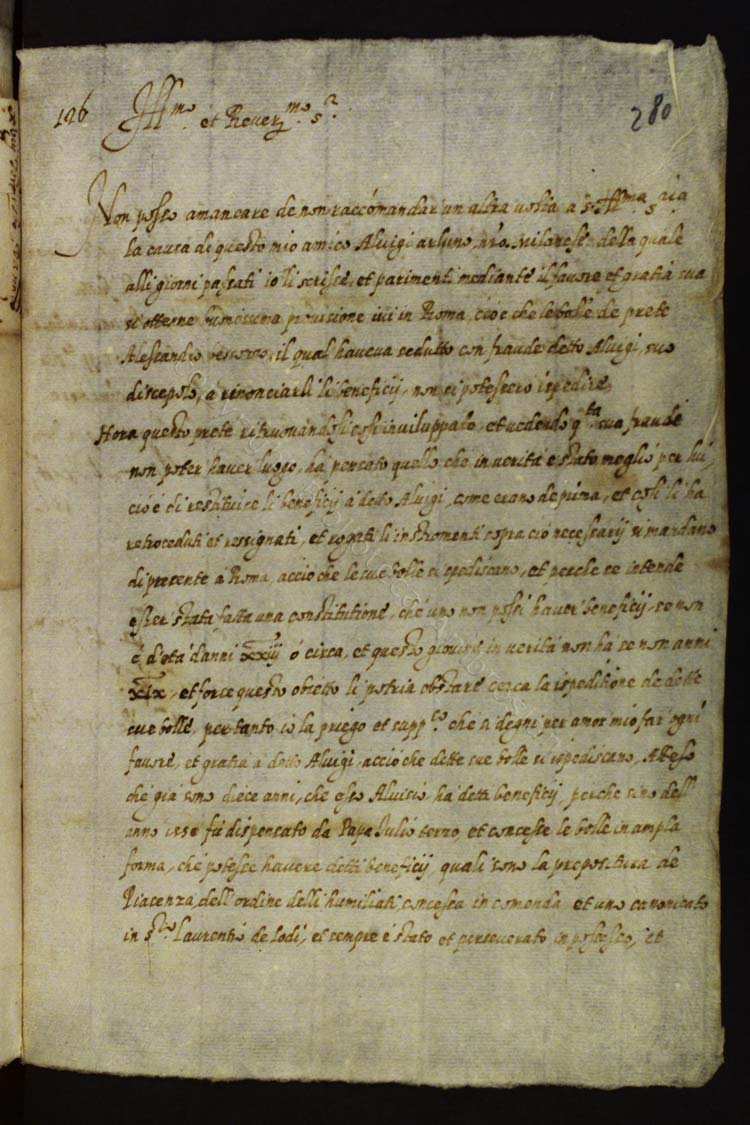 126 Ill.mo et Rever.mo s.r 280
Non posso amancare de non raccomandar' un altra volta a V. Ill.ma s.ria
la causa di questo mio amico Aluigi arluno, n'ro Milanese, della quale
alli giorni passati io li scrisse, et parimenti mediante il favore et gratia sua
si ottenne bonissima provisione ivi in Roma, cio è che le bolle de prete
Alessandro, il qual haveva sedutto con fraude detto Aluigi, suo
discepolo, a renonciarli li beneficij, non si potessero ispedire,
Hora questo prete ritruovandosi cosi inviluppato, et vedendo q.ta sua fraude
non poter haver luogo, ha percato quello che in verita è stato meglio per lui,
cio è di restituire li beneficij a detto Aluigi, come erano de prima, et cosi li ha
retroceduti et ressignati, et rogati li instromenti sopra ciò necessarij si mandano
di presente a Roma, acciò che le sue bolle si spediscano, et perche se intende
esser stata fatta una constitutione, che uno non possi haver beneficij, se non
è d'eta d'anni xxiij ò circa, et questo giovine in verità non ha se non anni
xix, et forse questo obietto li potria obstare cerca la ispeditione de dette
sue bolle, pertanto io la priego et supp.co che si degni per amor mio far' ogni
favore, et gratia a detto Aluigi, acciò che dette sue bolle si ispediscano, Atteso
che già sono diece anni, che esso Aluisio ha detti beneficij, perche sino dell'
anno 1550 fù dispensato da Papa Iulio terzo, et concesse le bolle in ampla
forma, che potesse havere detti beneficij, quali sono la prepositura de
Piacenza dell' ordine delli humiliati concessa in comenda et uno canonicato
in s.to Laurentio de Lodi, et sempre è stato et perseverato in possesso, et